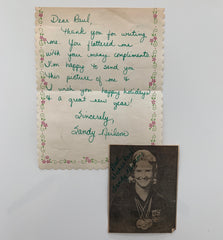 Dear Paul,
Thank you for writing
me. You flattered me
with your many compliments.
I'm happy to send you
this picture of me &
I wish you happy holidays
& a great new year!
Sincerely,
Sandy Neilson